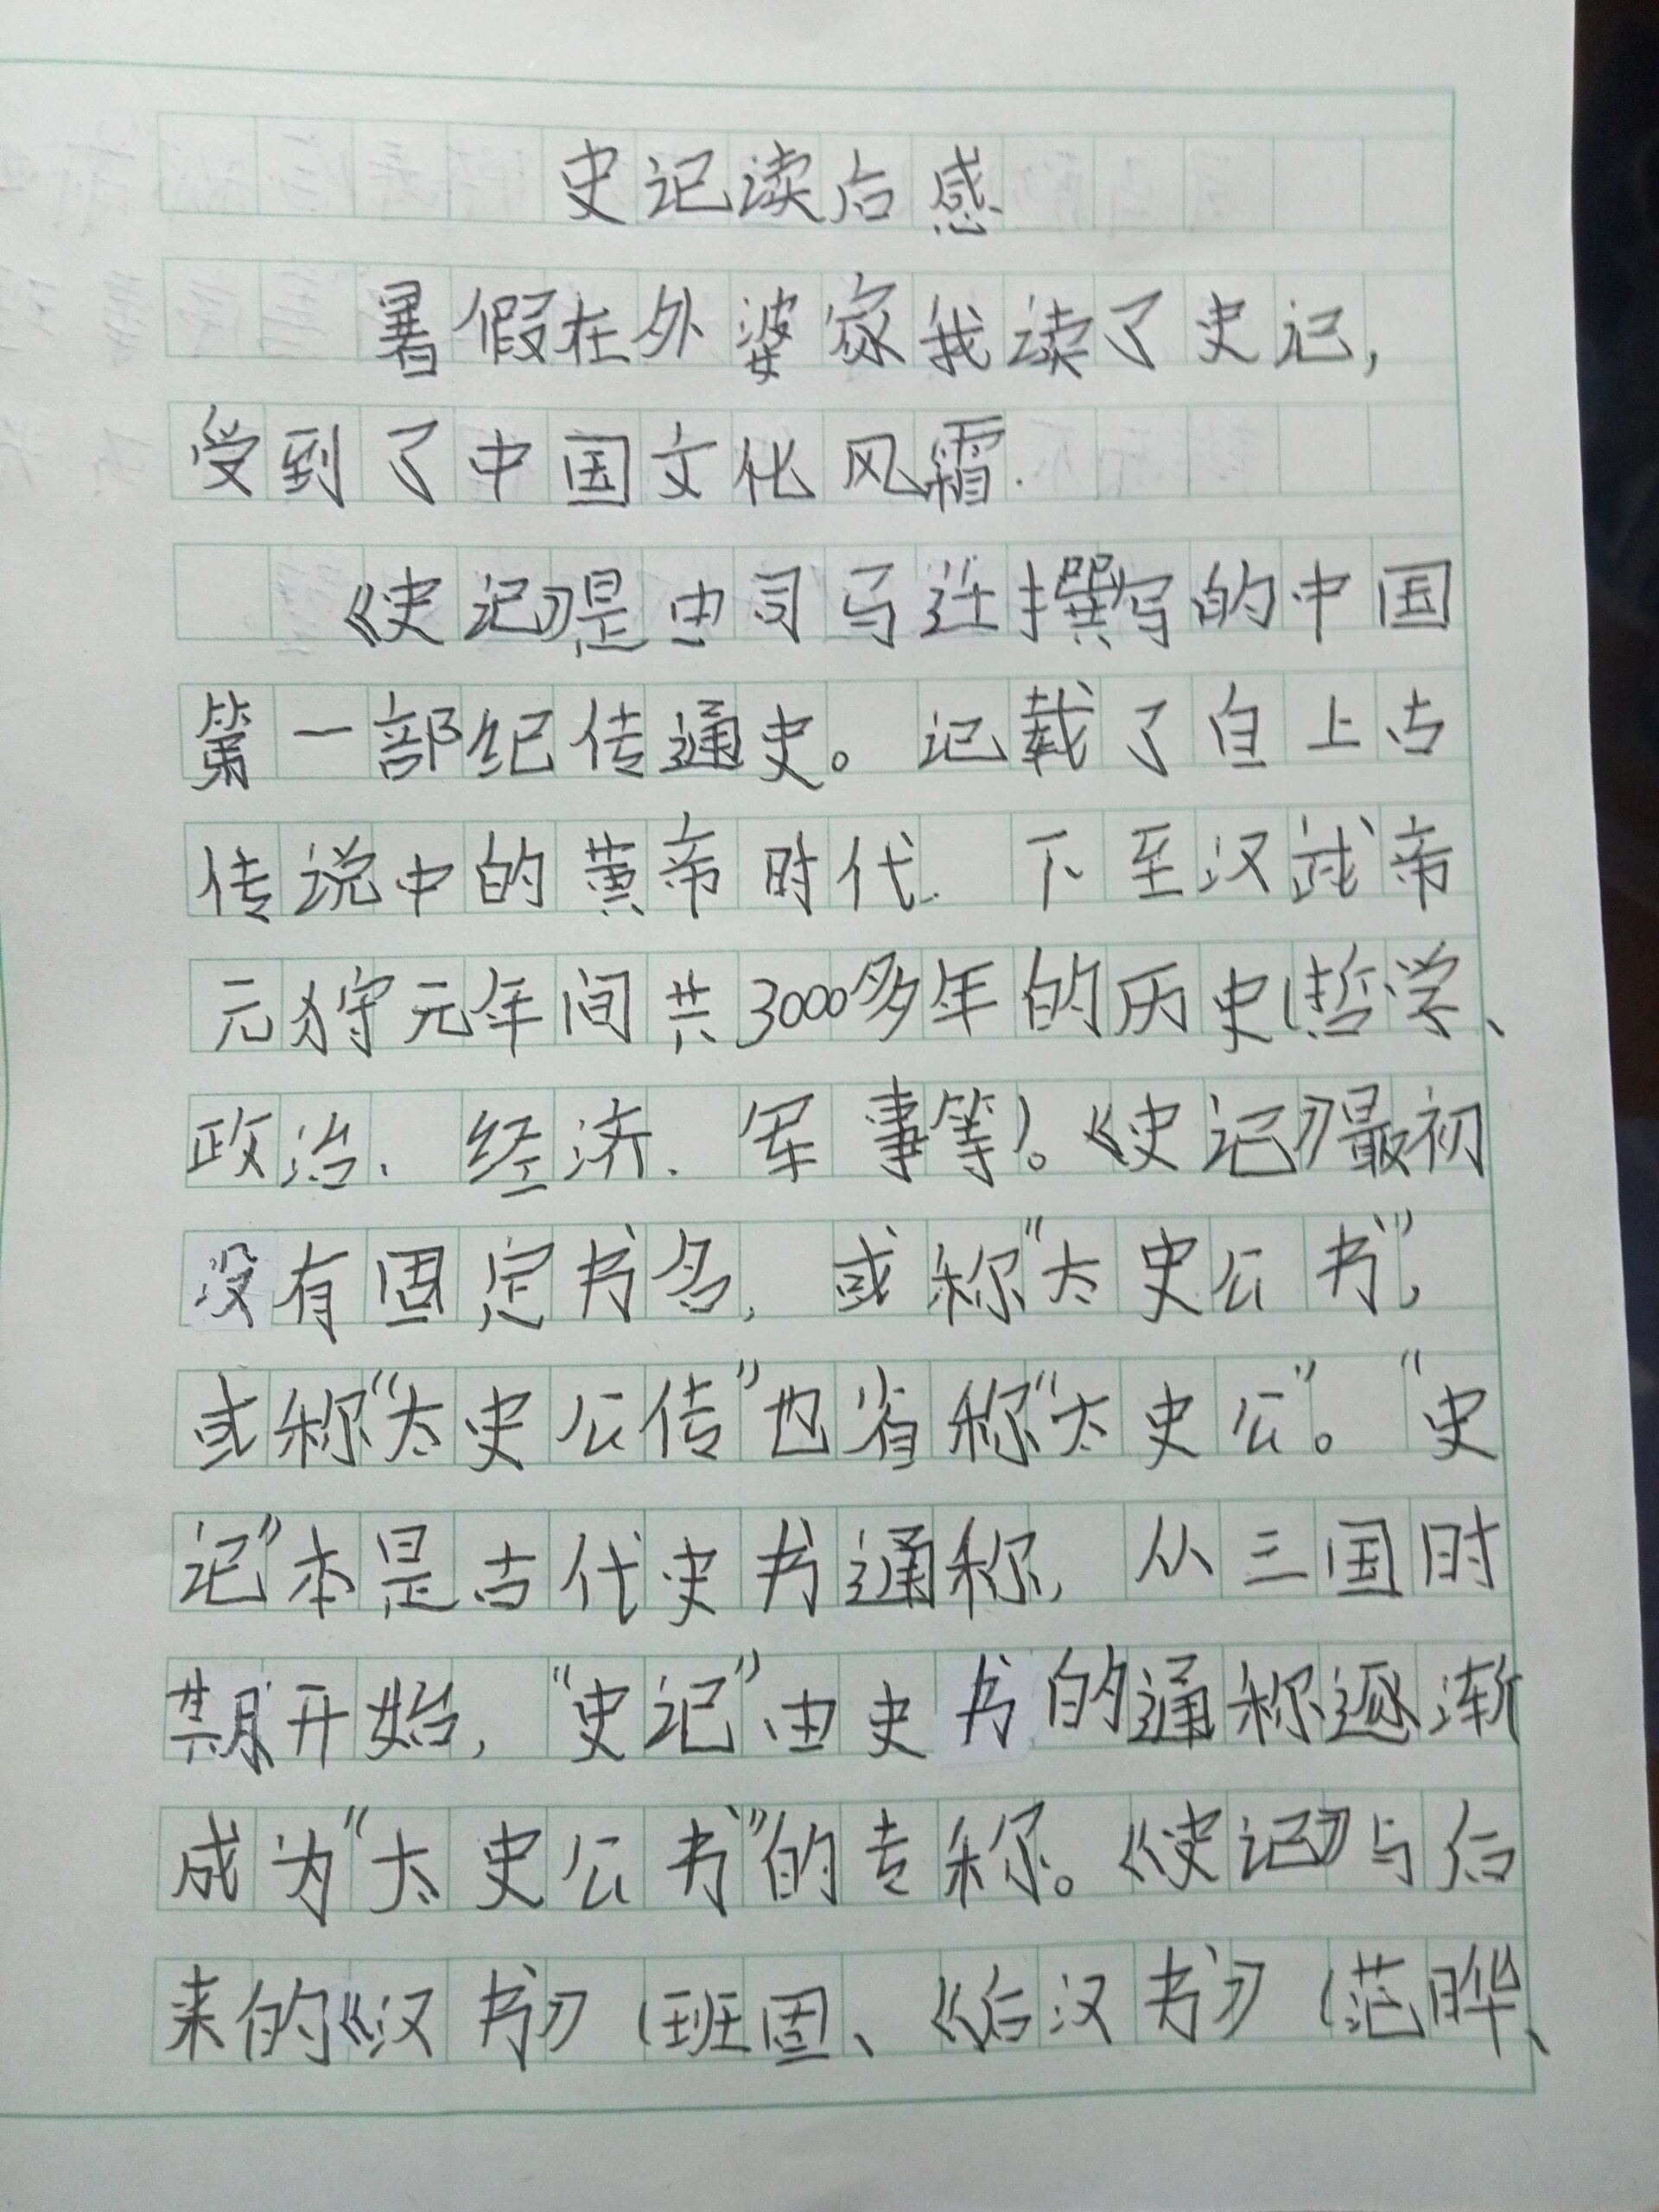 史记读后感
暑假在外婆家我读了史记,
受到了中国文化风霜.
《史记》是由司马迁撰写的中国
第一部纪传通史。记载了自上古
传说中的黄帝时代. 下至汉武帝
元狩元年间共3000多年的历史(哲学、
政治、经济、军事等)。《史记》最初
没有固定书名, 或称“太史公书”,
或称“太史公传”也省称“太史公”。“史
记”本是古代史书通称, 从三国时
期开始,“史记”由史书的通称逐渐
成为“太史公书”的专称。《史记》与后
来的《汉书》(班固、《后汉书》(范晔、